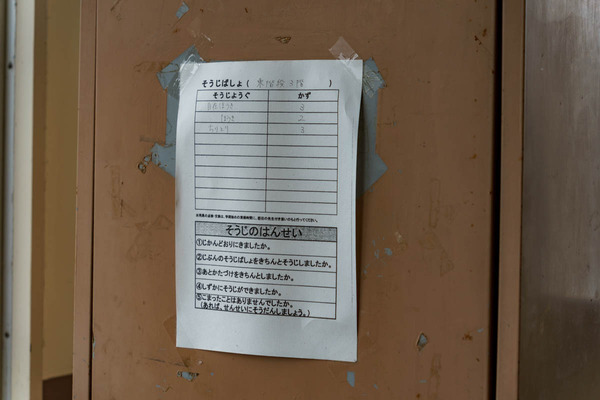 そうじばしょ( 東階段3階 )
そうじようぐ かず
自在ほうき 3
ほうき 2
ちりとり 3
そうじのはんせい
①じかんどおりにきましたか。
②じぶんのそうじばしょをきちんとそうじしましたか。
③あとかたづけをきちんとしましたか。
④しずかにそうじができましたか。
⑤こまったことはありませんでしたか。
(あれば、せんせいにそうだんしましょう。)